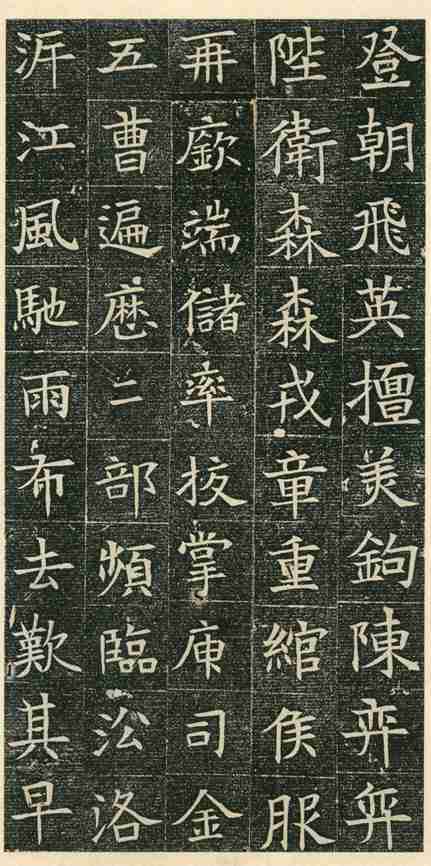 登朝飛英擅美鉤陳弈弈
陛衛森森戎章重綰侯服
再廞端儲率挍掌庫司金
五曹遍歷二部頻臨㳂洛
泝江風馳雨布去歎其早